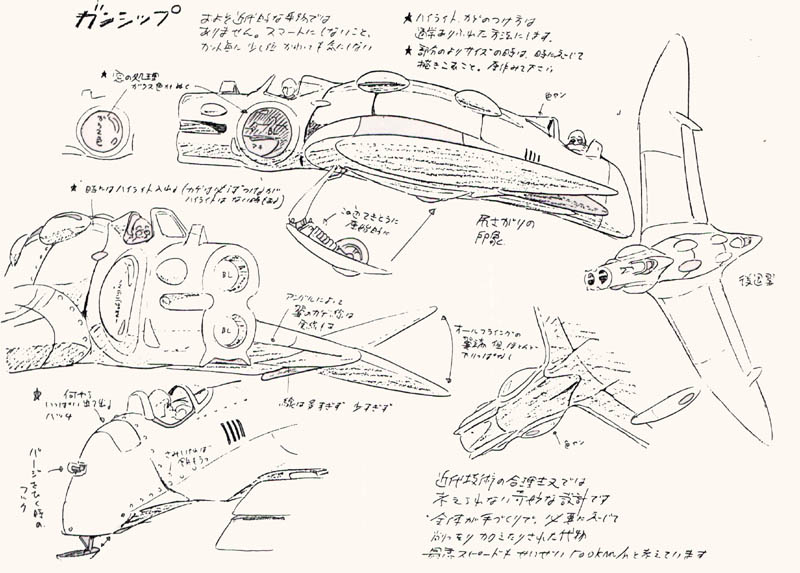 ガンシップ
およそ近代的な乗物では
ありません。スマートにしないこと、
カット毎に少し位かわっても気にしない
★ハイライト、カゲのつけ方は
通常ありふれた方法にします。
★部分のよりサイズの時は、時に応じて
描きこむこと。
★窓の処理
ガラス色
ガラス色
色ヤン
BL
★時にはハイライト入れる(カゲは必ずつけるが
ハイライトは
尻さがりの
印象
後退翼
BL
BL
アングルによって
翼のカゲ
オールフライングの
翼端
★何やら
いっぱい出てる
パッチ
線は多すぎず少なすぎず
バージをひく時の
フック
色ヤン
近代技術の合理主義では
考えられない奇妙な設計です
全体が手づくりで、必要に応じて
けずったり加えたりされた代物
最高スピードもせいぜい500Km/hと考えています